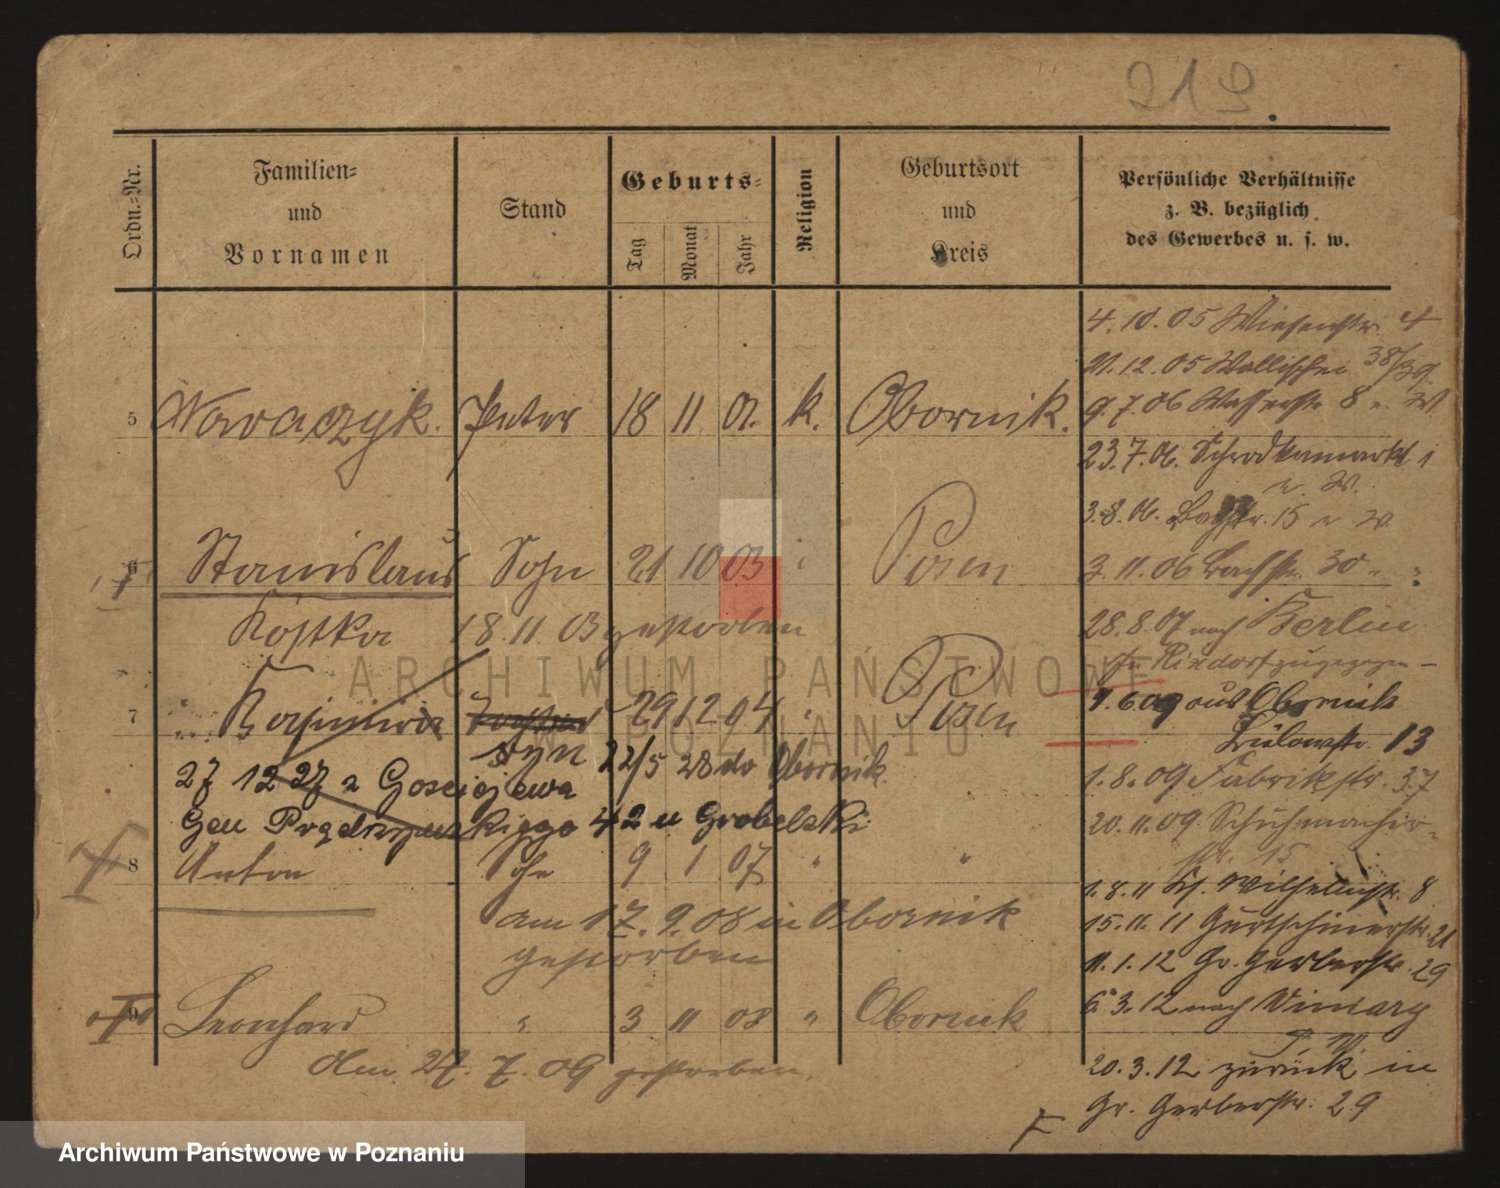 219.
Ordn.-Nr.
Familien-
und
Vornamen
Stand
Geburts-
Tag
Monat
Jahr
Religion
Geburtsort
und
Kreis
Persönliche Verhältnisse
z. B. bezüglich
des Gewerbes u. s. w.
4.10.05 Wiesenstr. 4
21.12.05 Wallischei 38/39
5 Nowaczyk. Peter 18 11 01. k. Obornik.
9.7.06 Wasserstr. 8
23.7.06. Schrodkamarkt 1
3.8.06. Bachstr. 15
6 Stanislaus Sohn 21 10 03 " Posen
3.11.06 Bachstr. 30 " "
Kostka 18.11.03 gestorben
28.8.07 nach Berlin
Rixdorf zugezogen
7 Kasimira 29 12 04 " Posen
syn
1.6.09 aus Obornik
Bülowstr. 13
27 12 27 z Gosciejewa 22/5 28 do Obornik
1.8.09 Fabrikstr. 37
Gen Prądzyńskiego 42 u Grobelski
20.11.09 Schuhmacher-
str. 15
8 Anton Sohn 9 1 07 " "
1.8.11 Wilhelmstr. 8
am 17.9.08 in Obornik
gestorben
15.11.11 Gurtschinerstr. 21
11.1.12 Gr. Gerberstr. 29
9 Leonhard " 3 11 08 " Obornik
6.3.12 nach Winiary
am 27.7.09 gestorben.
20.3.12 zurück in
Gr. Gerberstr. 29
ARCHIWUM PAŃSTWOWE
W POZNANIU
Archiwum Państwowe w Poznaniu